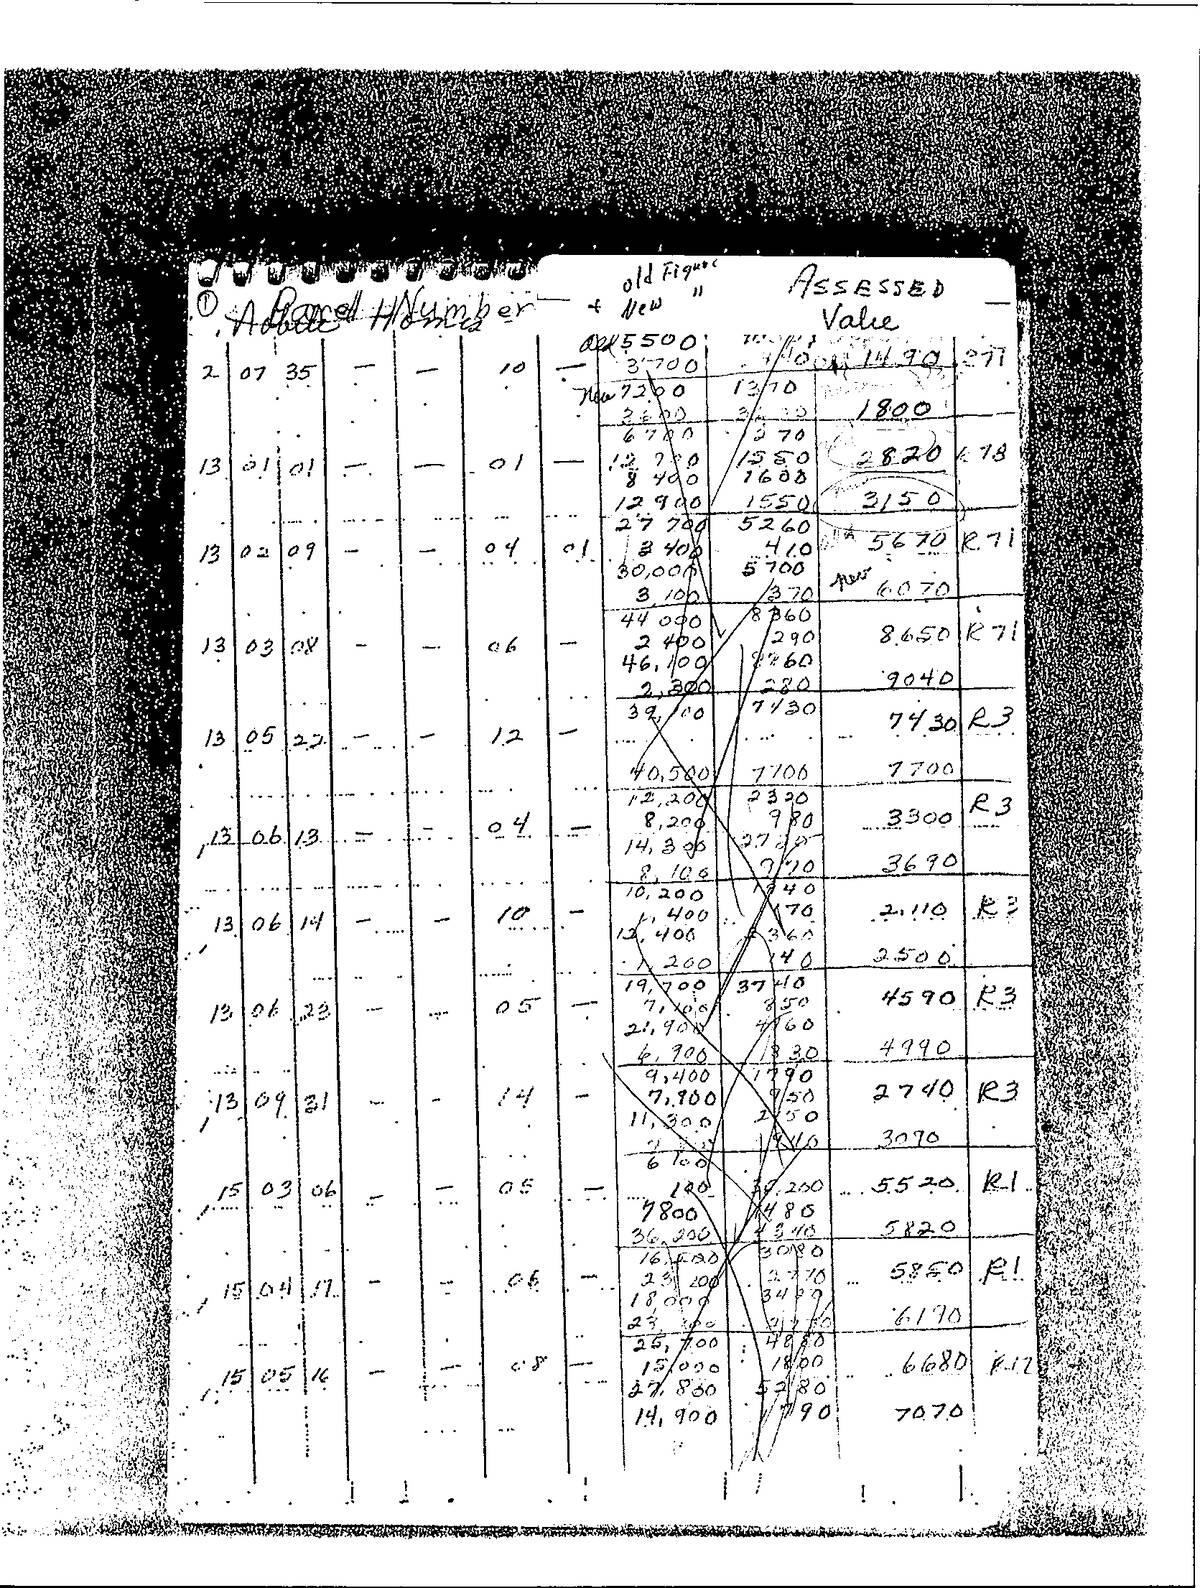 old Figure
ASSESSED
① Parcel Number — + New "
Value
old 5500
2 07 35 — — 10 — 3700 1490 R71
New 7200 1370
1800
6700 270
13 01 01 — — 01 — 12 700 1550 2820 R78
8 400 1600
12 900 1550 3150
27 700 5260
13 02 09 — — 04 01 3 400 410 5670 R71
30,000 5700
3,100 370 new 6070
44 000 8360
13 03 08 — — 06 — 2 400 290 8650 R71
46,100 8760
2,300 280 9040
39,100 7430
13 05 22 — — 12 — 7430 R3
40,500 7700 7700
12,200 2320
13 06 13 — — 04 — 8,200 980 3300 R3
14,300 2720
8,100 970 3690
10,200 1940
13 06 14 — — 10 — 1,400 170 2110 R3
12,400 2360
1,200 140 2500
19,700 3740
13 06 23 — — 05 — 7,100 850 4590 R3
21,900 4160
6,900 830 4990
9,400 1790
13 09 31 — — 14 — 7,900 950 2740 R3
11,300 2150
940 3090
6100
15 03 06 — — 05 — 36,200 5520 R1
7800 1480
36,200 4340 5820
16,200 3080
15 04 17 — — 06 — 23,100 2770 5850 R1
18,000 3420
6170
25,700 4880
15 05 16 — — 08 — 15,000 1800 6680 R12
27,800 5280
14,900 1790 7070